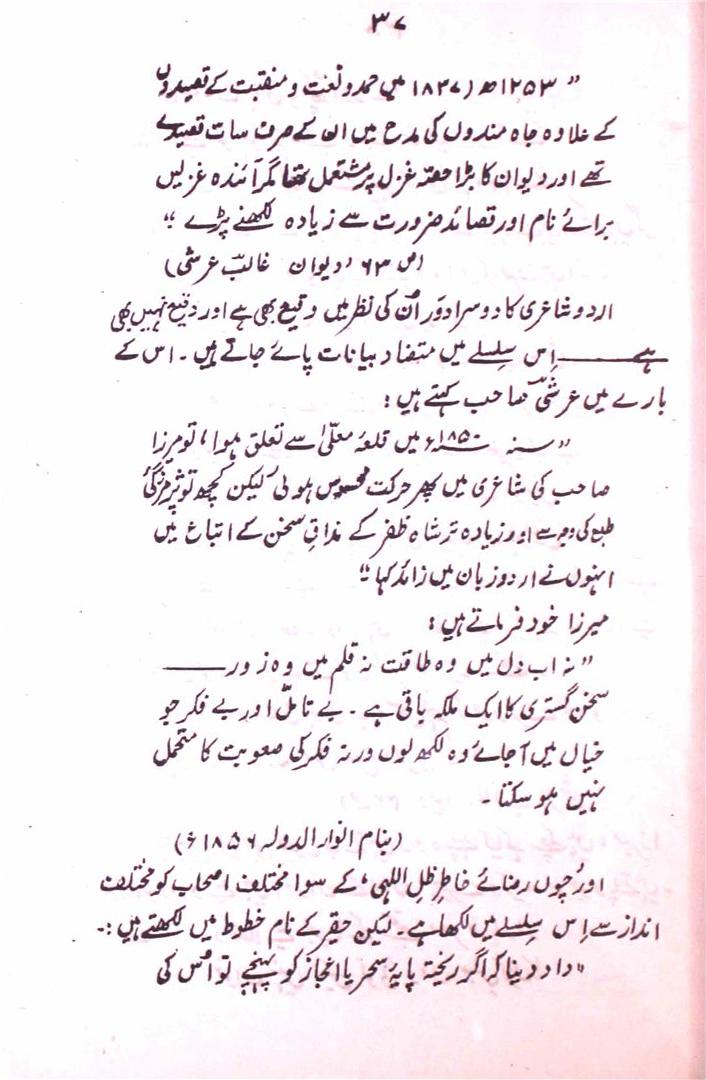 ۳۷
" ۱۲۵۳ھ (۱۸۳۷ میں حمد و نعت و منقبت کے قصیدوں
کے علاوہ جاہ مندوں کی مدح میں ان کے صرف سات قصیدے
تھے اور دیوان کا بڑا حصّہ غزل پر مشتمل تھا مگر آئندہ غزلیں
برائے نام اور قصائد ضرورت سے زیادہ لکھنے پڑے "
(ص ۶۳، دیوان غالبؔ عرشی)
اردو شاعری کا دوسرا دَور اُن کی نظر میں وقیع بھی ہے اور وقیع نہیں بھی
ہے ـــــــــ اِس سِلسِلے میں متضاد بیانات پائے جاتے ہیں ۔ اس کے
بارے میں عرشیؔ صاحب کہتے ہیں :
" سنہ ۱۸۵۰ء میں قلعۂ معلّیٰ سے تعلق ہوا، تو مرزا
صاحب کی شاعری میں پھر حرکت محسوس ہوئی لیکن کچھ تو ثمر مزگئ
طبع کی وجہ سے اور زیادہ تر شاہ ظفر کے مذاقِ سخن کے اتباع میں
انہوں نے اردو زبان میں زائد کہا "
میرزا خود فرماتے ہیں :
" نہ اب دل میں وہ طاقت نہ قلم میں وہ زور ـــــــــ
سخن گستری کا ایک ملکہ باقی ہے ۔ بے تامّل اور بے فکر جو
خیال میں آ جائے وہ لکھ لوں ورنہ فکر کی صعوبت کا متحمل
نہیں ہو سکتا ۔
(بنام انوار الدولہ ۱۸۵۶ء)
اور چوں رضائے خاطرِ ظلِ اللہی، کے سوا مختلف اصحاب کو مختلف
انداز سے اِس سِلسِلے میں لکھا ہے ۔ لیکن حقیر کے نام خطوط میں لکھتے ہیں :۔
" داد دینا کہ اگر ریختہ پایۂ سحر یا اعجاز کو پہنچے تو اُس کی